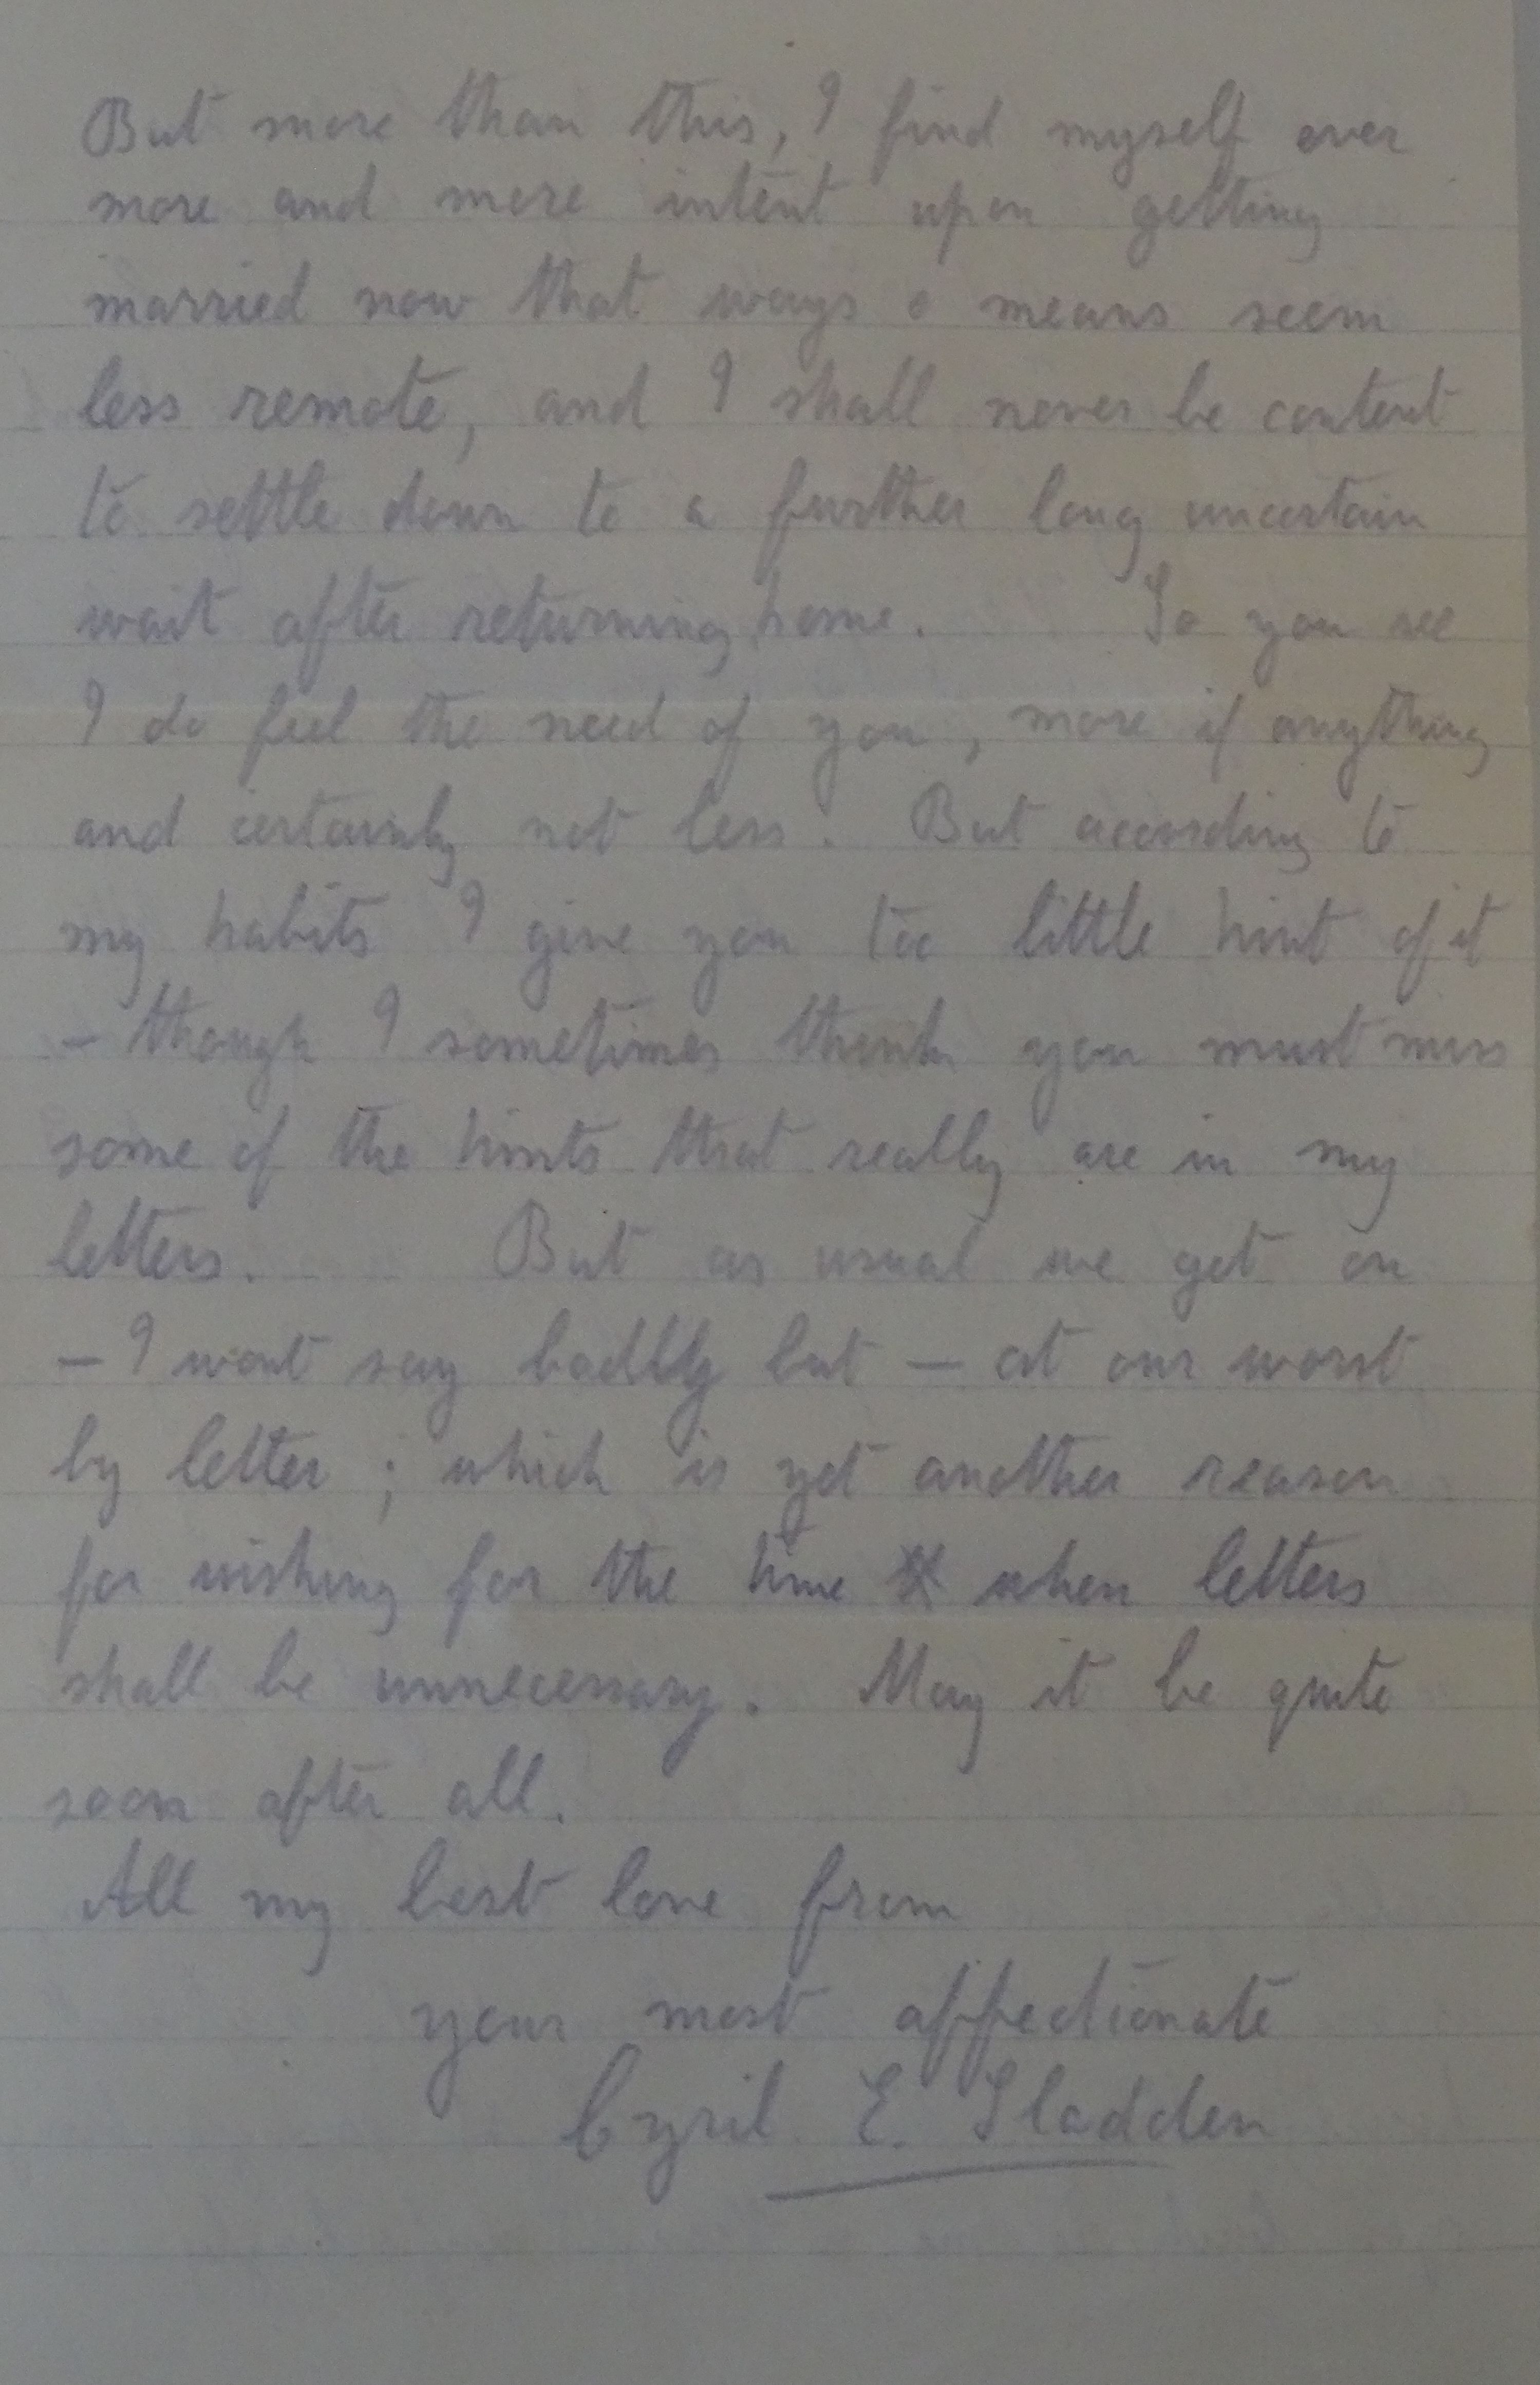 But more than this, I find myself ever
more and more intent upon getting
married now that ways & means seem
less remote, and I shall never be content
to settle down to a further long uncertain
wait after returning home. So you see
I do feel the need of you, more if anything
and certainly not less. But according to
my habits I give you too little hint of it
– though I sometimes think you must miss
some of the hints that really are in my
letters. But as usual we get on
– I wont say badly but – at our worst
by letter; which is yet another reason
for wishing for the time when letters
shall be unnecessary. May it be quite
soon after all.
All my best love from
your most affectionate
Cyril E. Sladden